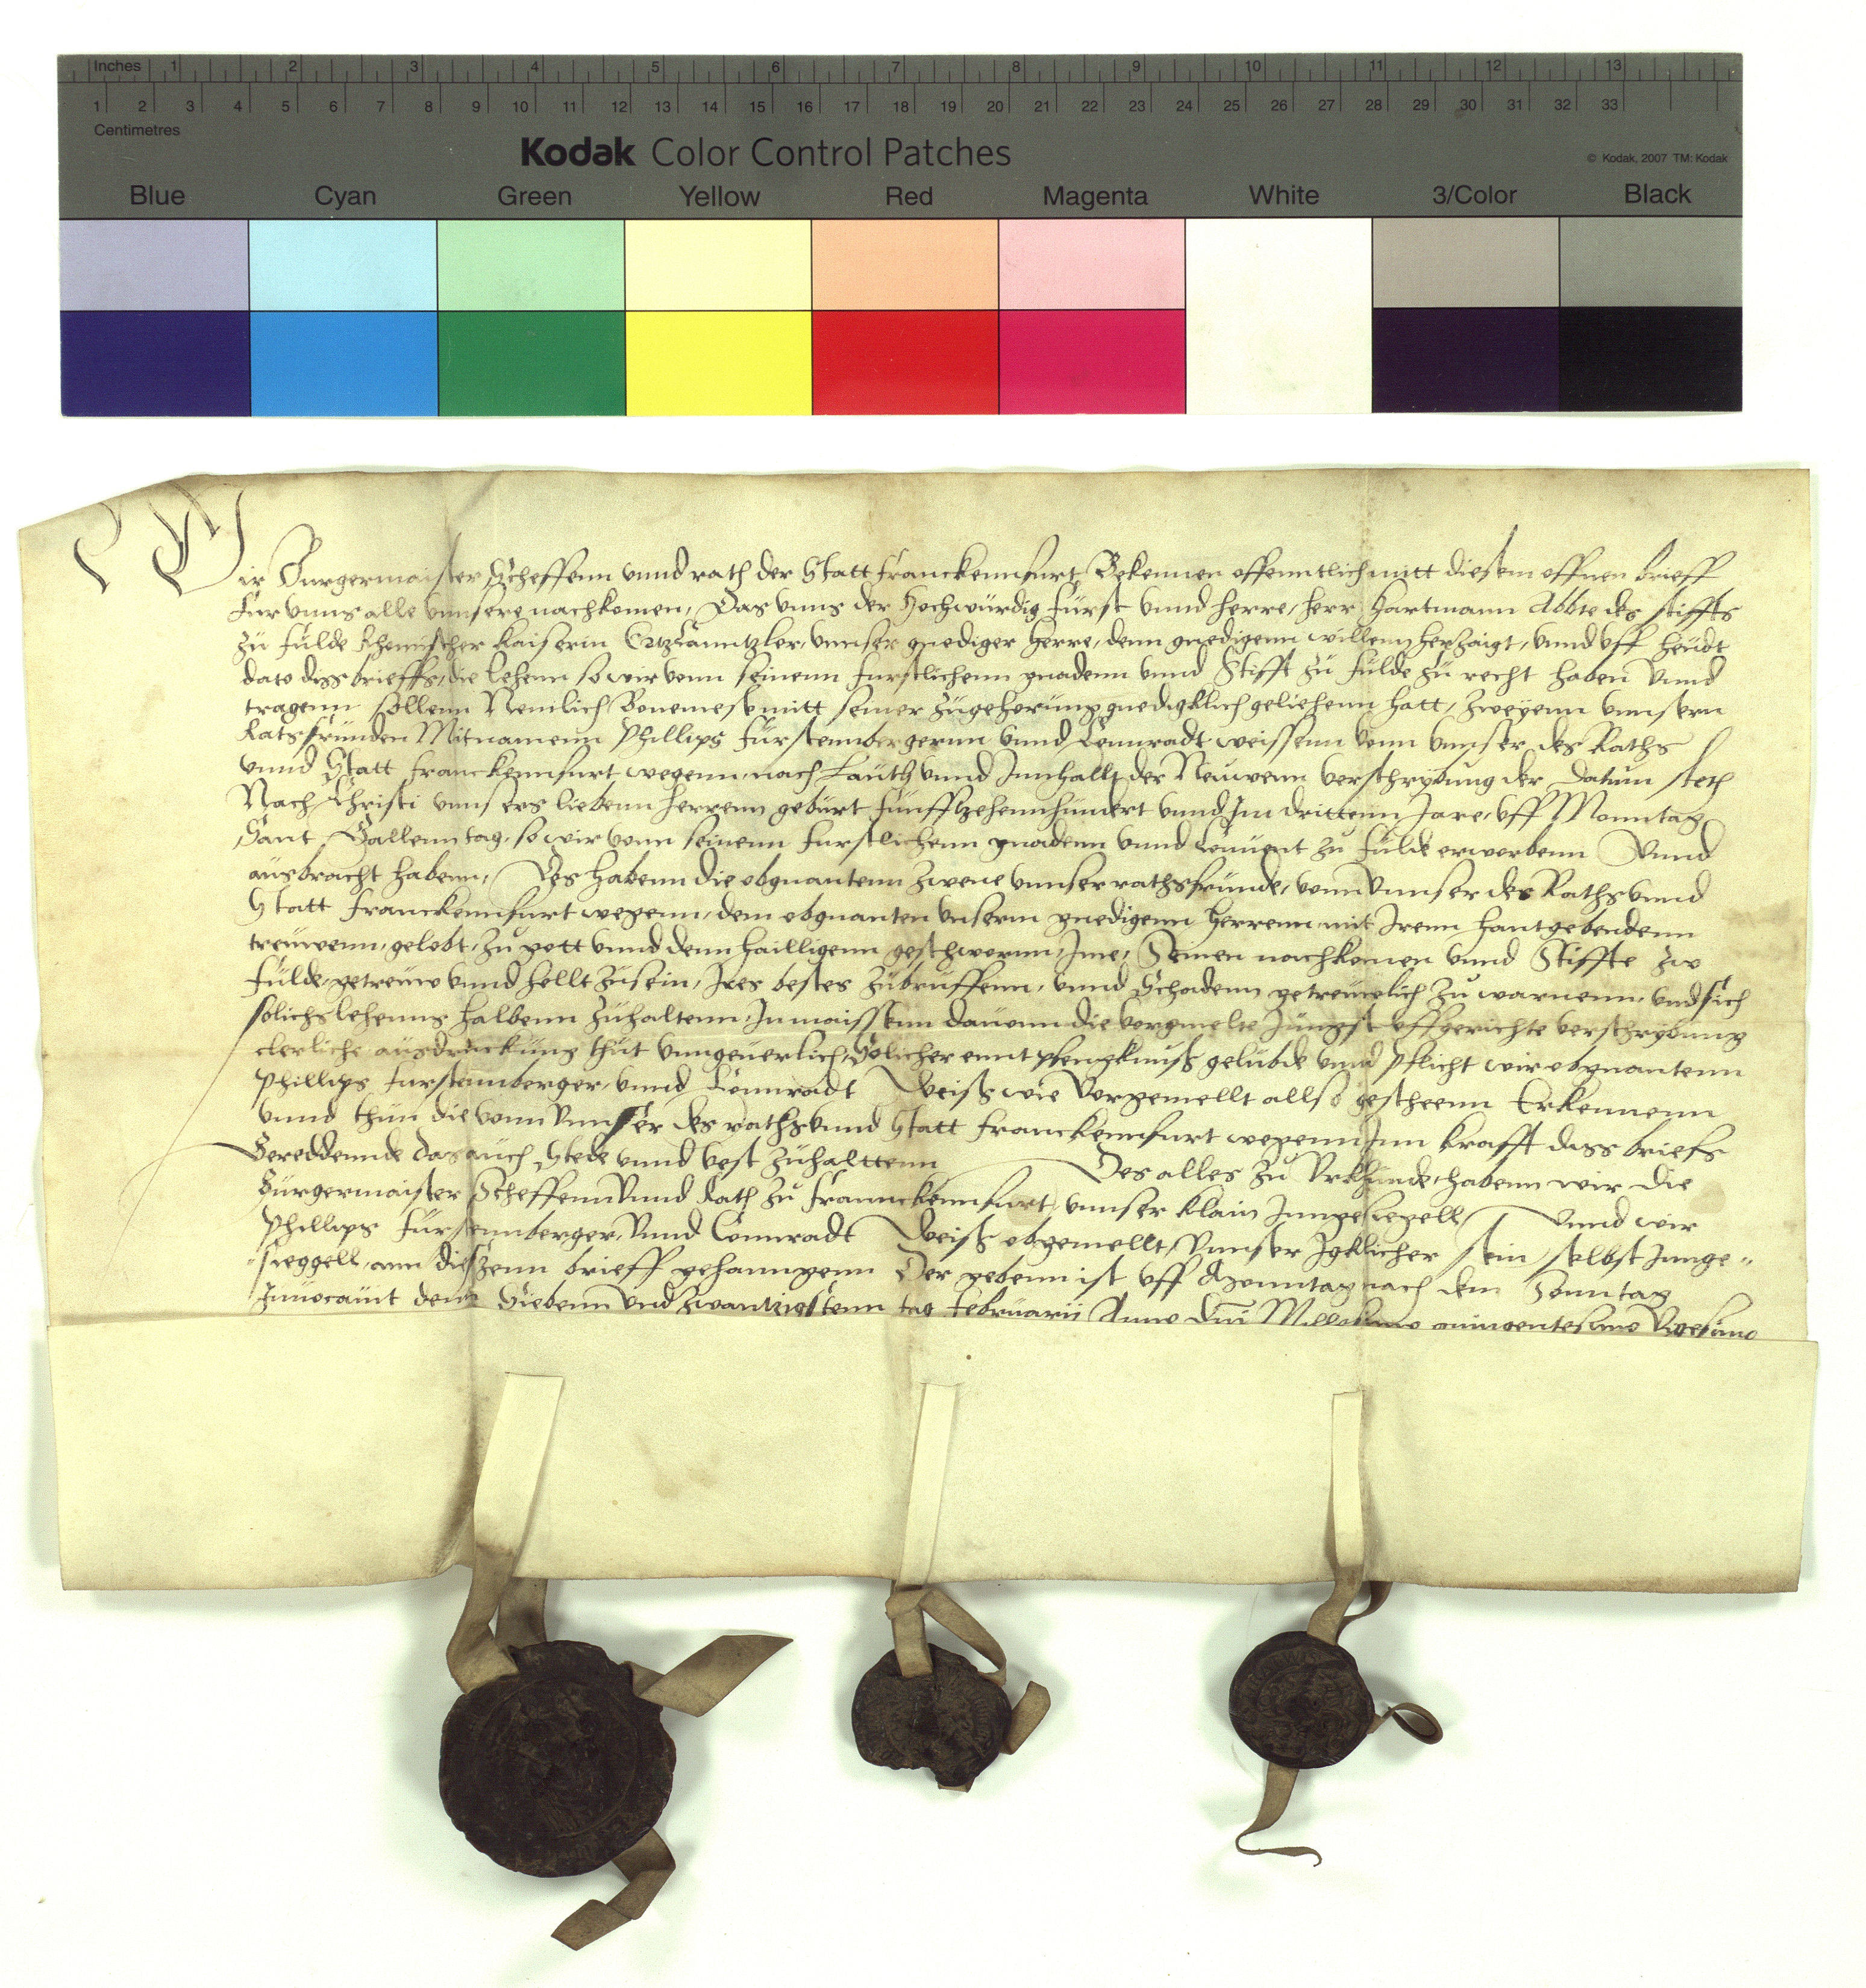 Inches 1 2 3 4 5 6 7 8 9 10 11 12 13
1 2 3 4 5 6 7 8 9 10 11 12 13 14 15 16 17 18 19 20 21 22 23 24 25 26 27 28 29 30 31 32 33
Centimetres
Kodak Color Control Patches
© Kodak, 2007 TM: Kodak
Blue Cyan Green Yellow Red Magenta White 3/Color Black
Wir Burgermaister Scheffenn vnnd rath der Statt Franckennfurt Bekennen offenntlich mitt diesem offnen brieff
Fur vnns alle vnnsere nachkomen, Das vnns der Hochwürdig Fürst vnnd Herre, Herr Hartmann Abbte des stiffts
zü Fülde Rhemischer Kaiserin Ertzcanntzler, vnnser gnediger Herre, denn gnedigenn willenn herzaigt, vnnd vff heüdt
dato diss brieffs, die lehenn so wir vonn seinenn furstlichenn gnadenn vnnd Stifft zü fülde zü recht haben vnnd
tragenn sollenn Nemlich Bonemese mitt seiner zügehorüng gnedigklich geliehenn hatt, zweyenn vnnsern
Ratsfründen Mitnamenn Phillips Fürstennbergernn vnnd Connradt weissenn vonn vnnser des Raths
vnnd Statt Franckennfurt wegenn nach Laüth vnnd Innhallt der Neüwenn verschrybung der Datum stett
Nach Christi vnnsers liebenn herrenn gebürt Fünfftzehennhündert vnnd Im drittenn Jare, vff Monntag
Sant Gallenn tag, so wir vonn seinenn furstlichenn gnadenn vnnd Conuent zü fülde erworbenn Vnnd
aüsbracht habenn, Des habenn die obgnantenn zwene vnnser rathsfründe, vonn Vnnser des Raths vnnd
Statt Franckennfurt wegenn, dem obgnanten vnserm gnedigenn Herrenn mit Irenn hantgebendenn
treüwenn, gelobt, zü gott vnnd denn hailligenn geschworn, Ime, Seinen nachkomen vnnd Stiffte zw
Fülde, getreüw vnnd hellt züsein, Ires bestes zübrüffenn, vnnd Schadenn getreüwlich zü warnenn, vnd sich
solichs lehenns halbenn zühaltenn, In maissenn dauonn die vorgmelte Jüngst vffgerichte verschrybung
clerliche aüsdrückung thüt vnngeuerlich, Solicher enntpfengknüß gelübde vnnd pflicht wir obgnantenn
Phillips Furstennberger, vnnd Connradt Weiß wie Vorgemellt allso gescheenn Erkennenn
vnnd thün die vonn Vnnser des raths vnnd Statt Franckennfurt wegenn Inn krafft dass briefs
Gereddennde das aüch Stede vnnd vest zühalttenn Des alles zü Vrkhünde, habenn wir die
Bürgermaister Scheffenn Vnnd Rath zü Franckennfurt, vnnser klain Inngesiegell Vnnd wir
Phillips Fürstennberger, Vnnd Connradt Weiß obgemellt, Vnnser Igklicher sein selbst Innge=
=sieggell, ann dießenn brieff gehanngenn Der gebenn ist vff Monntag nach dem Sonntag
Inüocaüit denn Siebenn vnd zwantzigstenn tag Februarii Anno dni Millesimo quingentesimo Vicesimo